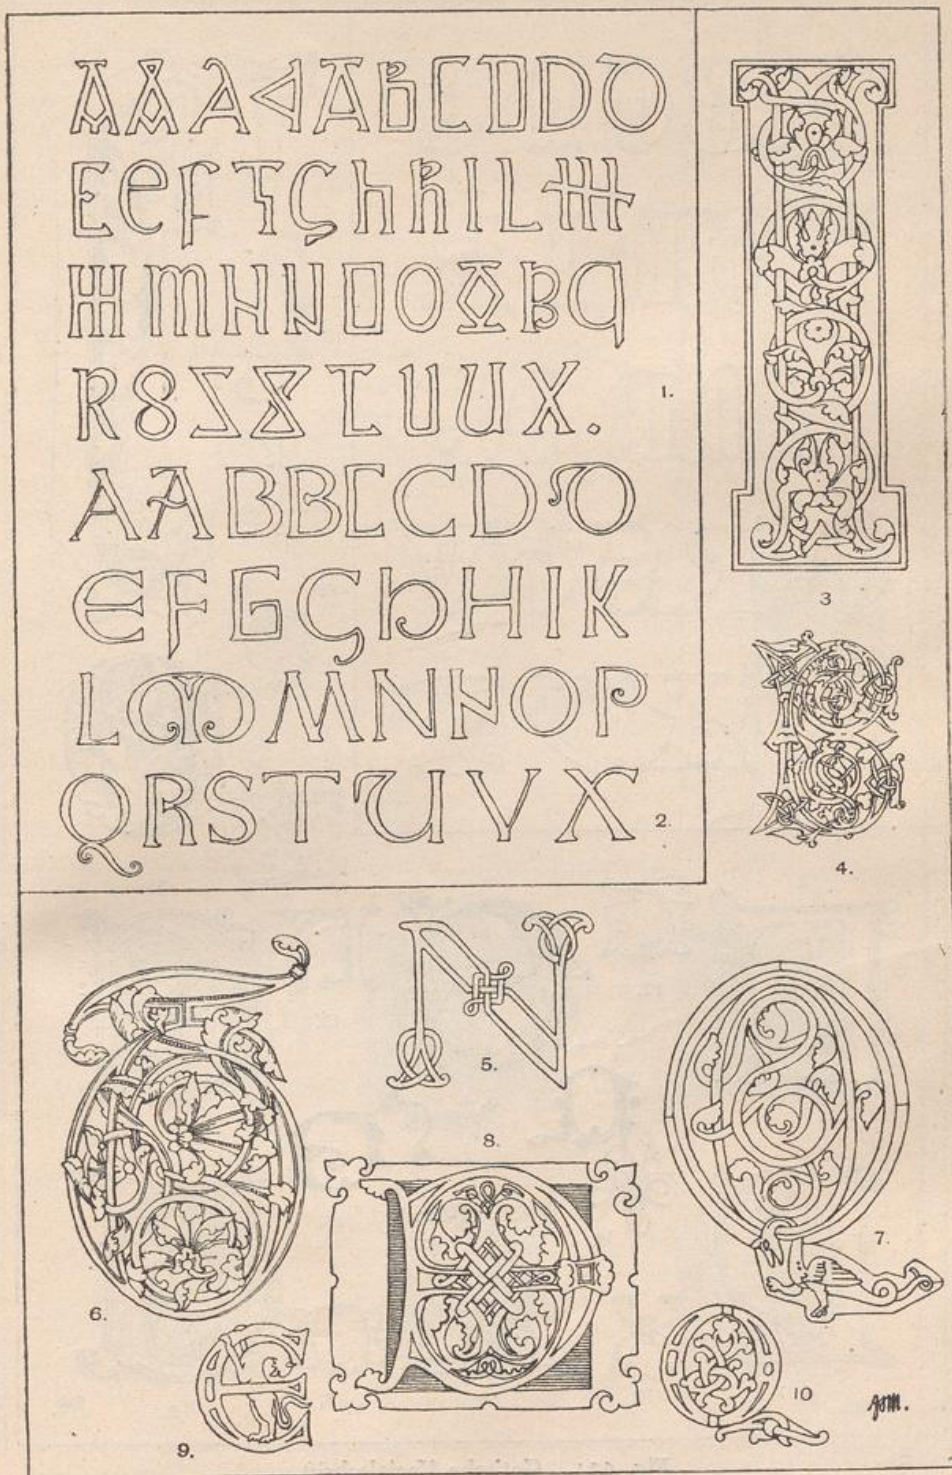 AAAAABCDDD
EEFTGHHILM
MMHNOOOBQ
RSSSTUUX.
1.
AABBCCDD
EFGGHHIK
LMMNNOP
QRSTUVX
2.
3
4.
N
5.
6.
Q
7.
8.
E
9.
Q
10